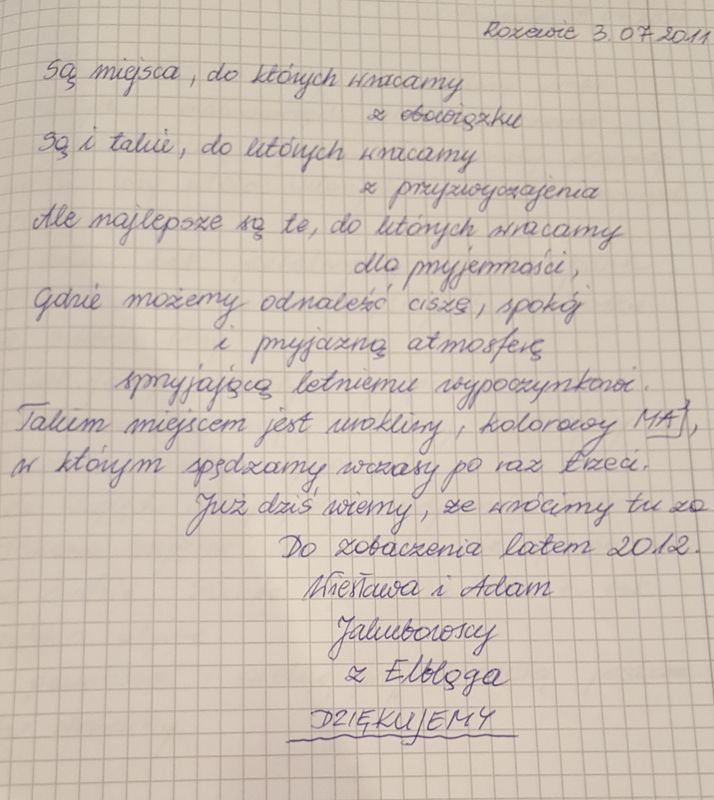 Rozewie 3.07.2011
Są miejsca, do których wracamy
z obowiązku
Są i takie, do których wracamy
z przyzwyczajenia
Ale najlepsze są te, do których wracamy
dla przyjemności,
Gdzie możemy odnaleźć ciszę, spokój
i przyjazną atmosferę
sprzyjającą letniemu wypoczynkowi.
Takim miejscem jest urokliwy, kolorowy MAJ,
w którym spędzamy wczasy po raz trzeci.
Już dziś wiemy, że wrócimy tu za
Do zobaczenia latem 2012.
Wiesława i Adam
Jakuborscy
z Elbląga
DZIĘKUJEMY